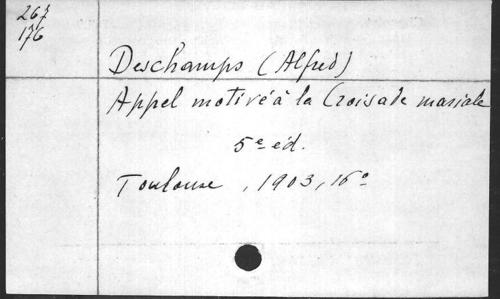 267
176
Deschamps (Alfred)
Appel motivé à la Croisade mariale
5e éd.
Toulouse, 1903, 16o